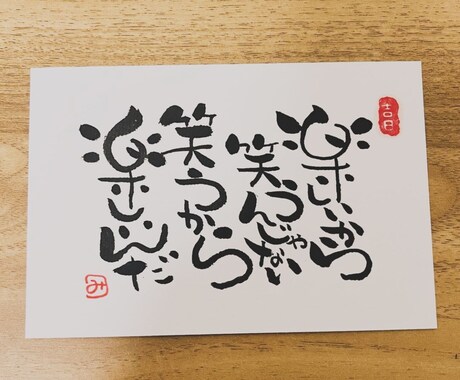 楽しいから
笑うんじゃない
笑うから
楽しいんだ
み